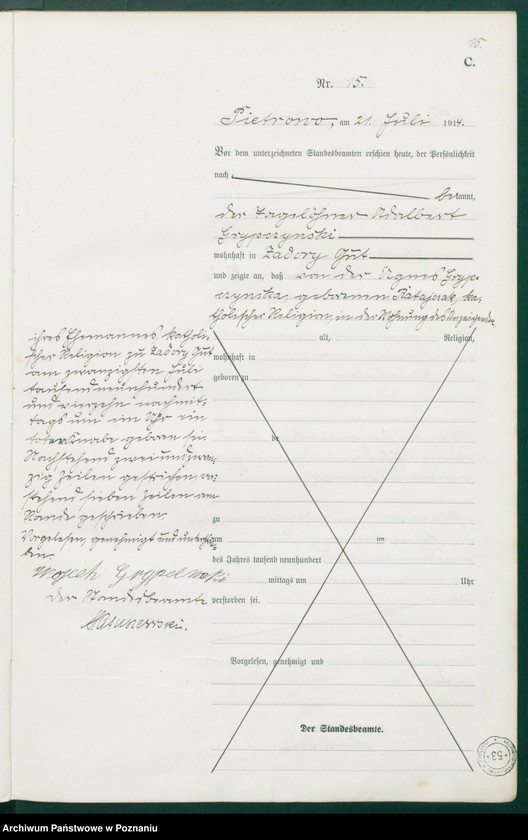 15.
C.
Nr. 15.
Pietrowo, am 21. Juli 1914.
Vor dem unterzeichneten Standesbeamten erschien heute, der Persönlichkeit
nach
bekannt,
der Tagelöhner Adalbert
Grypczynski
wohnhaft in Zadory Gut
und zeigte an, daß von der Agnes Gryp-
czynska, geborenen Ratajczak, ka-
tholischer Religion, in der Wohnung des Anzeigenden
alt, Religion,
wohnhaft in
geboren zu
zu
am ten
des Jahres tausend neunhundert
mittags um Uhr
verstorben sei.
Vorgelesen, genehmigt und
Der Standesbeamte.
ihres Ehemannes katholi-
scher Religion zu Zadory Gut
am zwanzigsten Juli
tausendneunhundert
und vierzehn nachmit-
tags um ein Uhr ein
toter Knabe geboren sei
Nachstehend zweiundzwan-
zig Zeilen gestrichen, vor-
stehend sieben Zeilen am
Rande geschrieben.
Vorgelesen, genehmigt und unterschrie-
ben.
Wojceh
Der Standesbeamte
53
Archiwum Państwowe w Poznaniu